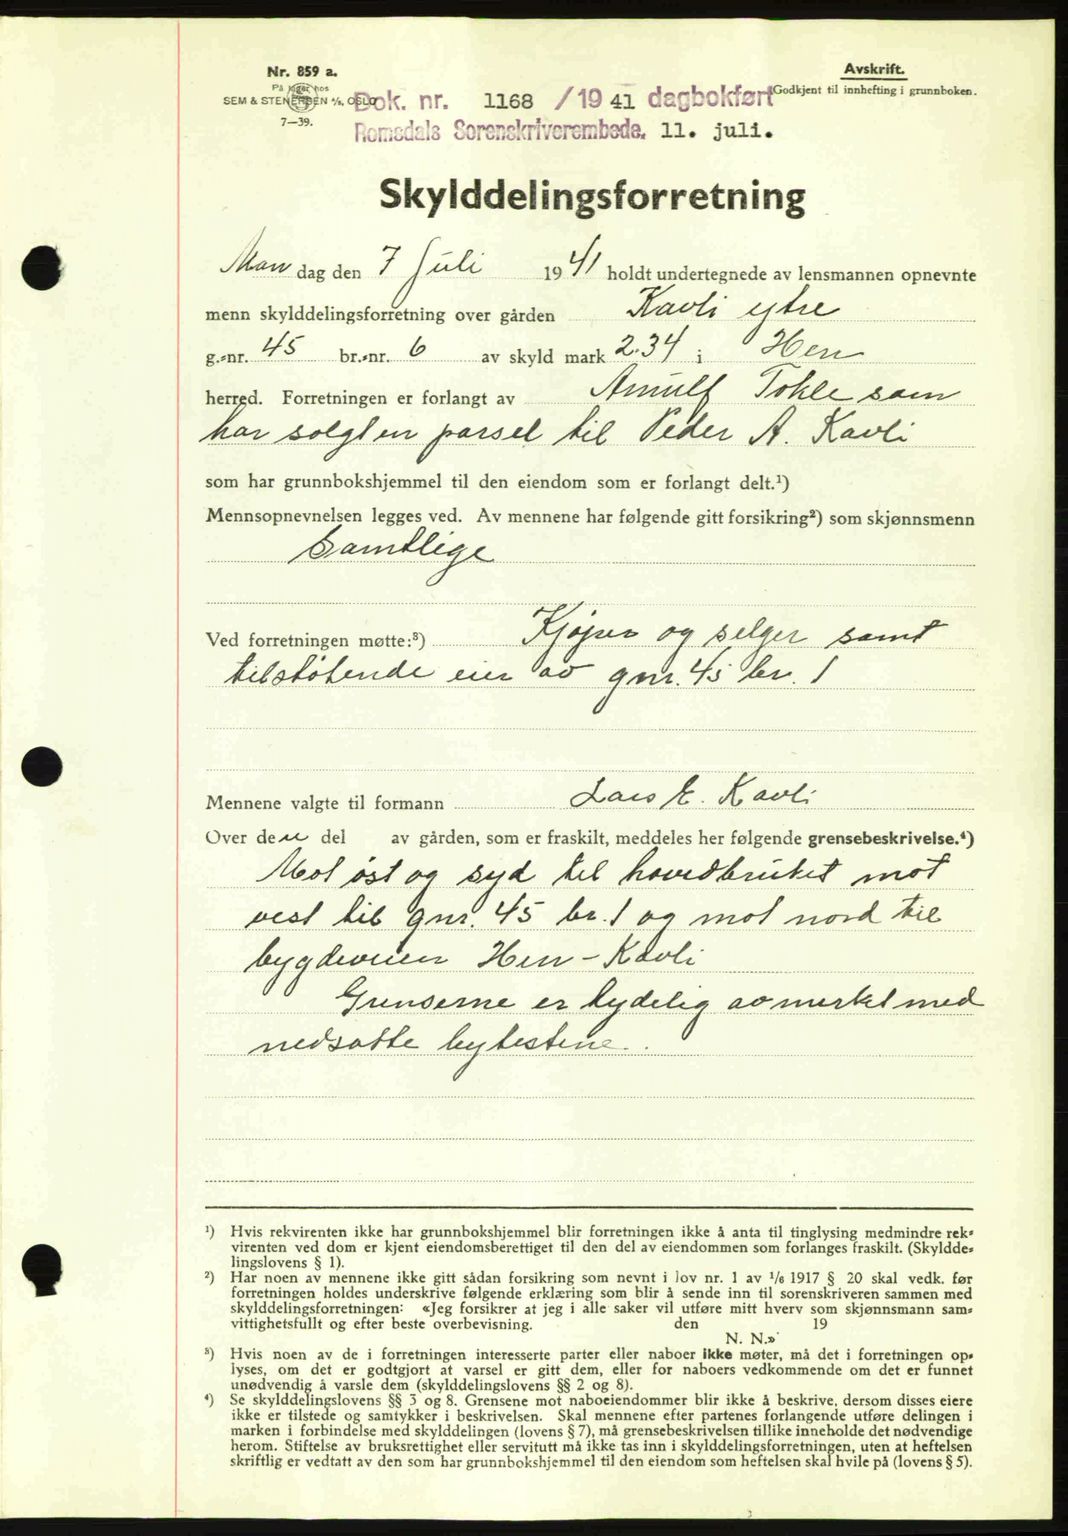 Nr. 859 a.
På lager hos
SEM & STENERSEN A/S, OSLO
7—39.
Avskrift.
Godkjent til innhefting i grunnboken.
Dok. nr. 1168 /19 41 dagbokført
Romsdals Sorenskriverembede. 11. juli.
Skylddelingsforretning
Man dag den 7 Juli 19 41 holdt undertegnede av lensmannen opnevnte
menn skylddelingsforretning over gården Kavli ytre
g.-nr. 45 br.-nr. 6 av skyld mark 2.34 i Hen
herred. Forretningen er forlangt av Arnulf Tokle som
har solgt en parsel til Peder A. Kavli
som har grunnbokshjemmel til den eiendom som er forlangt delt.¹)
Mennsopnevnelsen legges ved. Av mennene har følgende gitt forsikring²) som skjønnsmenn
Samtlige
Ved forretningen møtte:³) Kjøper og selger samt
tilstøtende eier av gnr. 45 br. 1
Mennene valgte til formann Lars E. Kavli
Over den del av gården, som er fraskilt, meddeles her følgende grensebeskrivelse.⁴)
Mot øst og syd til hovedbruket mot
vest til gnr. 45 br. 1 og mot nord til
bygdeveien Hen - Kavli
Grenserne er tydelig avmerket med
nedsatte bytestene.
¹) Hvis rekvirenten ikke har grunnbokshjemmel blir forretningen ikke å anta til tinglysing medmindre rek-
virenten ved dom er kjent eiendomsberettiget til den del av eiendommen som forlanges fraskilt. (Skyldde-
lingslovens § 1).
²) Har noen av mennene ikke gitt sådan forsikring som nevnt i lov nr. 1 av 1/6 1917 § 20 skal vedk. før
forretningen holdes underskrive følgende erklæring som blir å sende inn til sorenskriveren sammen med
skylddelingsforretningen: «Jeg forsikrer at jeg i alle saker vil utføre mitt hverv som skjønnsmann sam-
vittighetsfullt og efter beste overbevisning. den 19
N. N.»
³) Hvis noen av de i forretningen interesserte parter eller naboer ikke møter, må det i forretningen op-
lyses, om det er godtgjort at varsel er gitt dem, eller for naboers vedkommende om det er funnet
unødvendig å varsle dem (skylddelingslovens §§ 2 og 8).
⁴) Se skylddelingslovens §§ 3 og 8. Grensene mot naboeiendommer blir ikke å beskrive, dersom disses eiere
ikke er tilstede og samtykker i beskrivelsen. Skal mennene efter partenes forlangende utføre delingen i
marken i forbindelse med skylddelingen (lovens § 7), må grensebeskrivelsen tillike inneholde det nødvendige
herom. Stiftelse av bruksrettighet eller servitutt må ikke tas inn i skylddelingsforretningen, uten at heftelsen
skriftlig er vedtatt av den som har grunnbokshjemmel til den eiendom som heftelsen skal hvile på (lovens § 5).